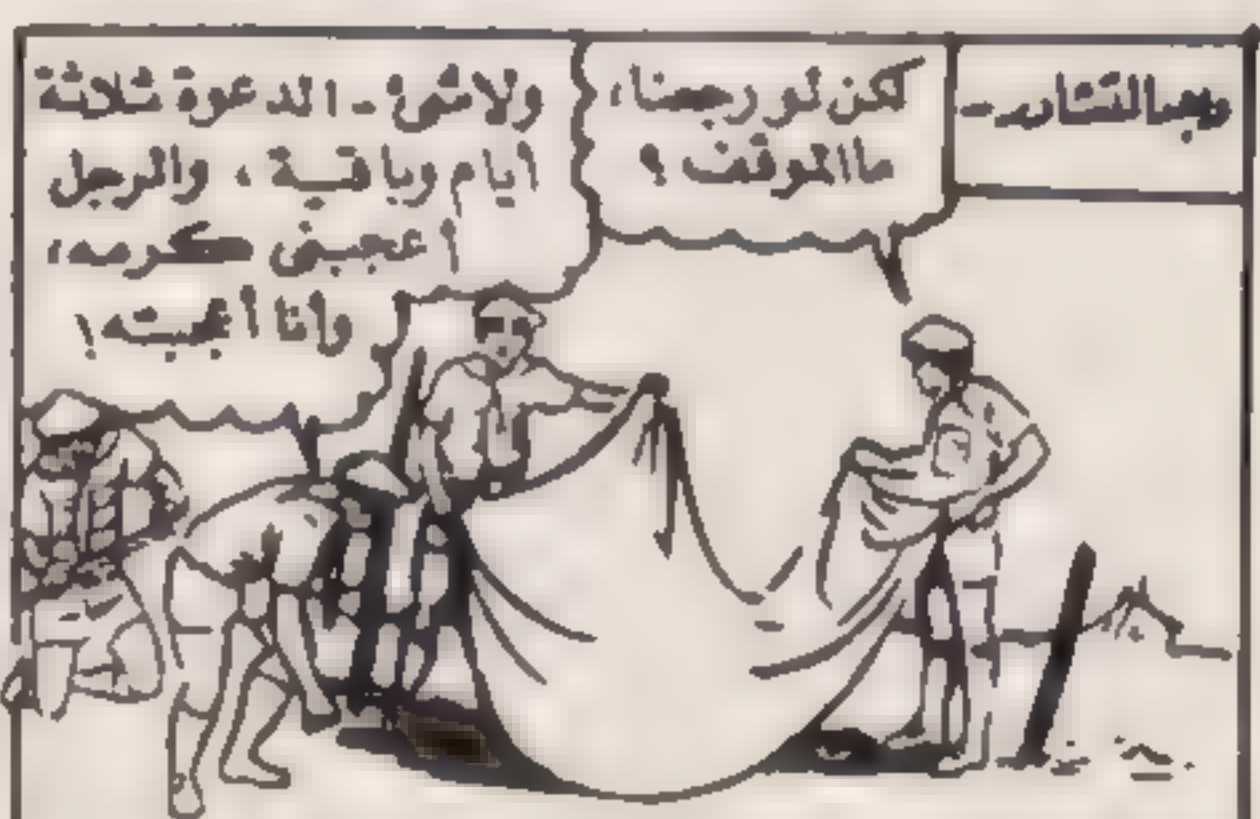 لكن لو رجعنا،
ما الموقف ؟
ولا شئ - الدعوة ثلاثة
أيام وباقية ، والرجل
أعجبني كرمه،
وانا أعجبته !